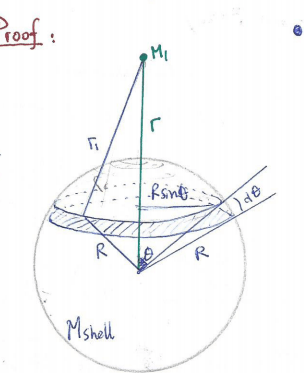 Proof :
M₁
r₁
r
R sinθ
dθ
R
θ
R
Mshell